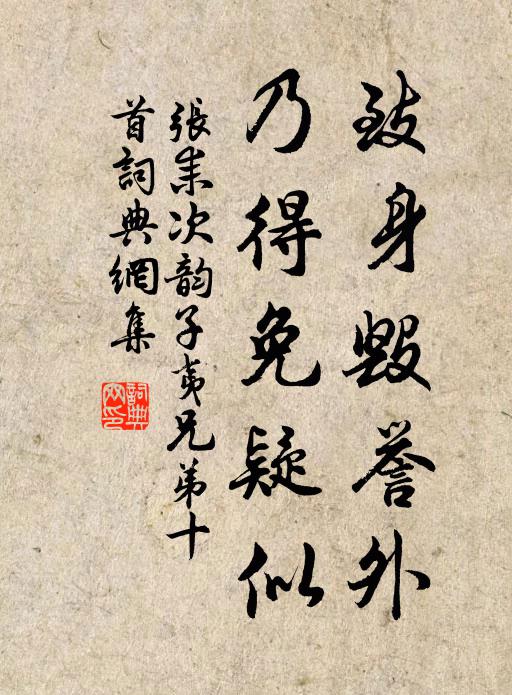 致身毀譽外
乃得免疑似
張耒次韵子夷兄弟十
首詞典網集
詞典網印